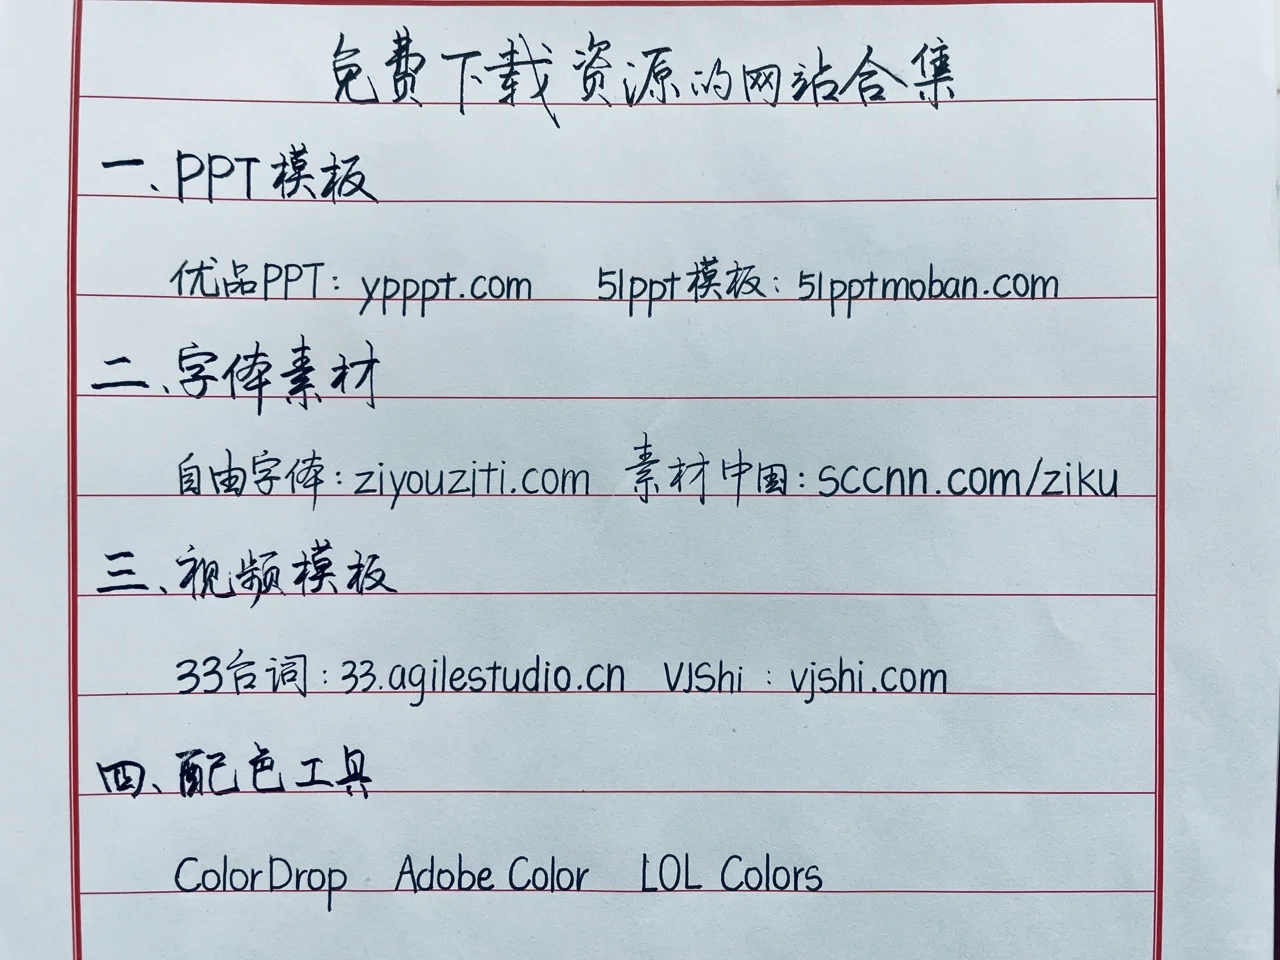 免费下载资源的网站合集
一、PPT模板
优品PPT：ypppt.com 51ppt模板：51pptmoban.com
二、字体素材
自由字体：ziyouziti.com 素材中国：sccnn.com/ziku
三、视频模板
33台词：33.agilestudio.cn VJShi：vjshi.com
四、配色工具
ColorDrop Adobe Color LOL Colors